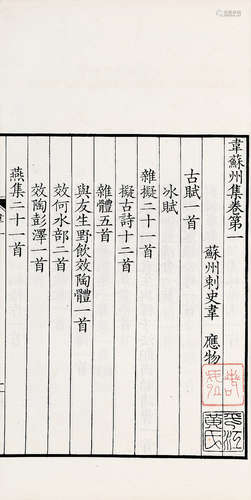 韋蘇州集卷第一
蘇州刺史韋 應物
古賦一首
冰賦
雜擬二十一首
擬古詩十二首
雜體五首
與友生野飲效陶體一首
效何水部二首
效陶彭澤一首
燕集二十一首